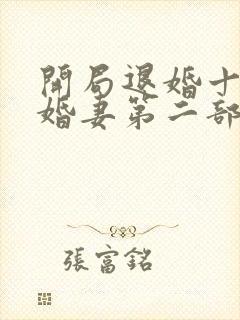 開局退婚十
婚妻第二部
張富銘